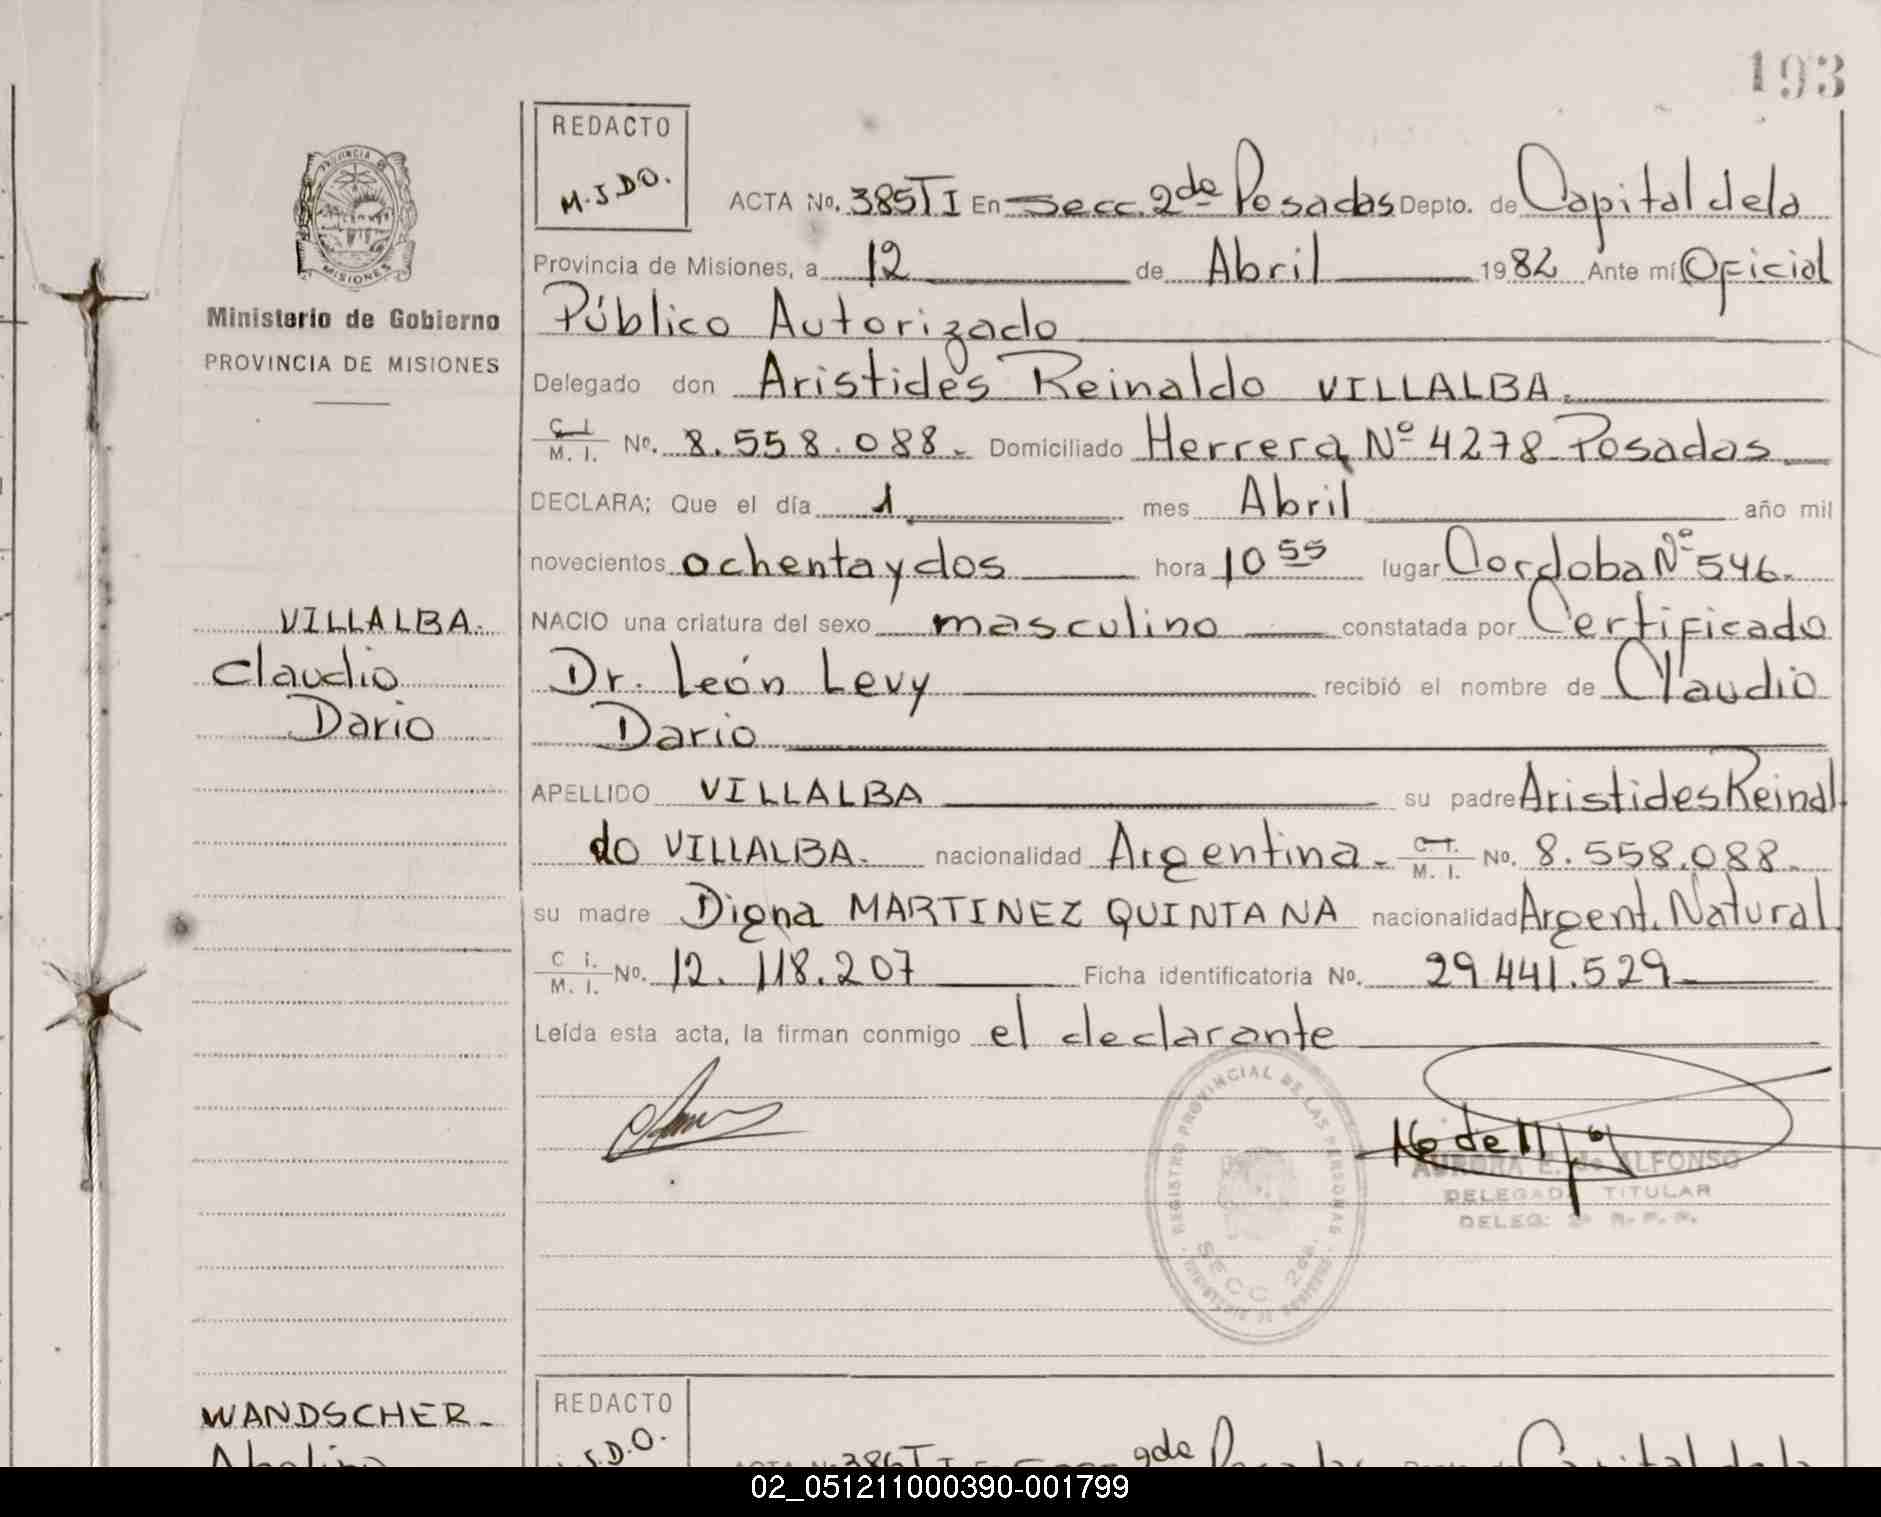 193
REDACTO
M.J.DO.
PROVINCIA DE
MISIONES
Ministerio de Gobierno
PROVINCIA DE MISIONES
ACTA No. 385TI En Secc. 2da Posadas Depto. de Capital de la
Provincia de Misiones, a 12 de Abril 1982 Ante mí Oficial
Público Autorizado
Delegado don Aristides Reinaldo VILLALBA.
C. I. / M. I. No. 8.558.088. Domiciliado Herrera Nº 4278 Posadas
DECLARA; Que el día 1 mes Abril año mil
novecientos ochenta y dos hora 10 55 lugar Cordoba Nº 546.
NACIO una criatura del sexo masculino constatada por Certificado
Dr. León Levy recibió el nombre de Claudio
Dario
VILLALBA.
Claudio
Dario
APELLIDO VILLALBA su padre Aristides Reinal
do VILLALBA. nacionalidad Argentina. C. I. / M. I. No. 8.558.088.
su madre Digna MARTINEZ QUINTANA nacionalidad Argent. Natural
C i. / M. I. No. 12.118.207 Ficha identificatoria No. 29.441.529
Leída esta acta, la firman conmigo el declarante
REGISTRO PROVINCIAL DE LAS PERSONAS
SECC 2da.
AURORA E. de ALFONSO
DELEGADA TITULAR
DELEG: 2ª R. P. P.
WANDSCHER.
REDACTO
J.D.O.
ACTA No. 386TI En Secc. 2da Posadas Depto. de Capital de la
02_051211000390-001799